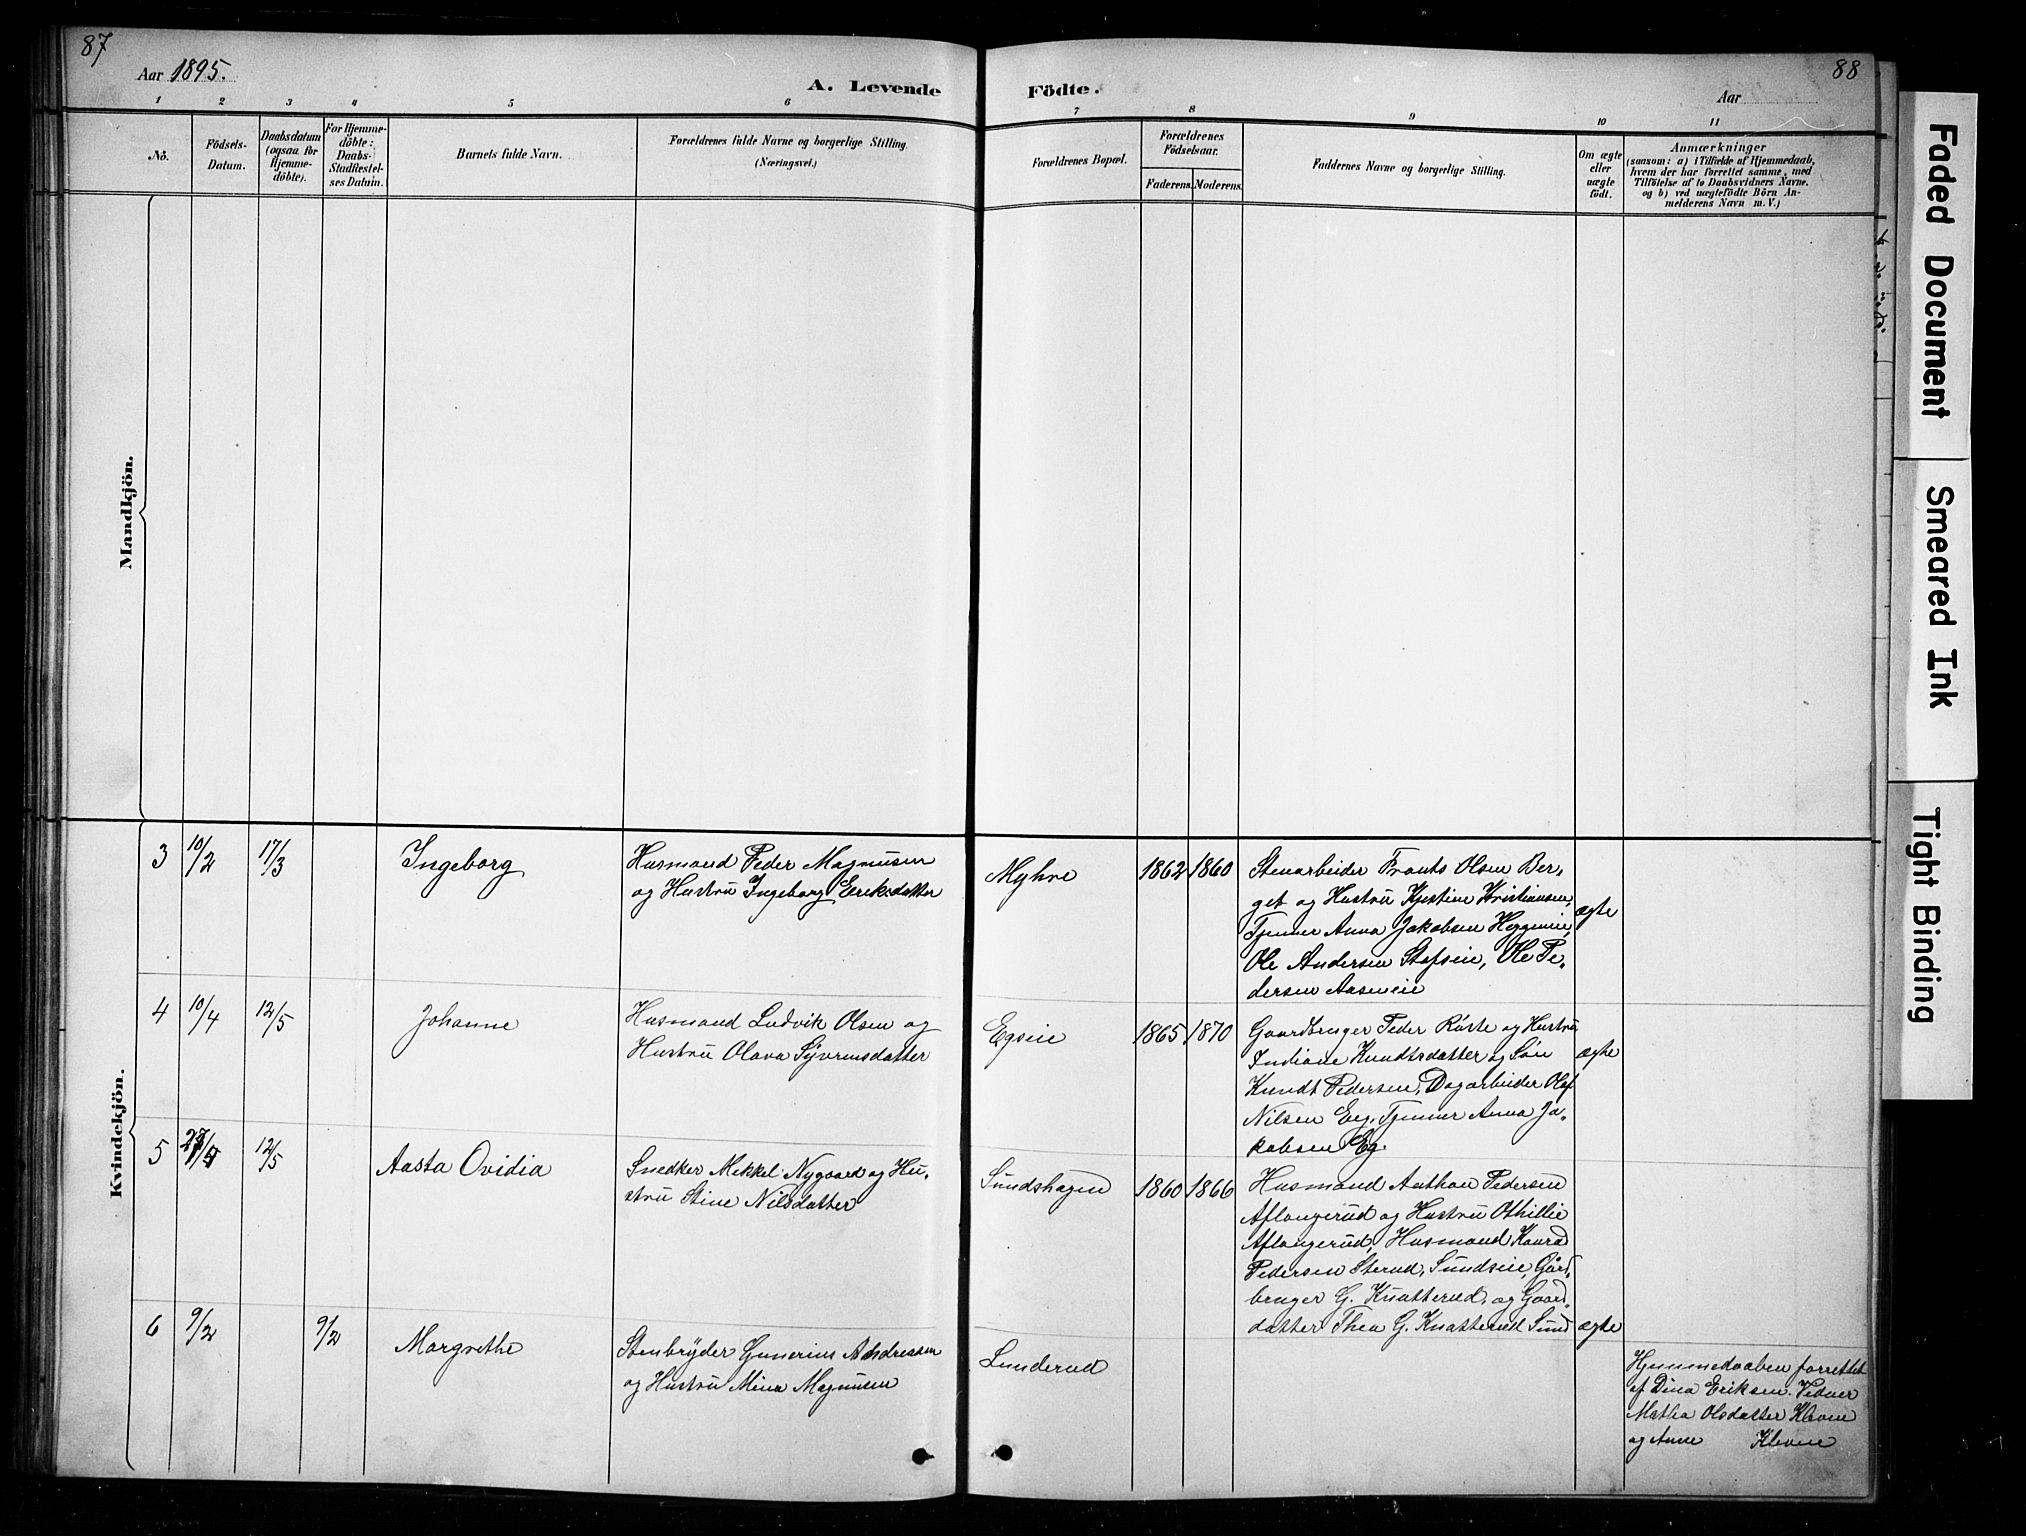 87
Aar 1895.
A. Levende
1 2 3 4 5 6
No.
Födsels-
Datum.
Daabsdatum
(ogsaa for
Hjemme-
döbte).
For Hjemme-
döbte:
Daabs-
Stadfæstel-
ses Datum.
Barnets fulde Navn.
Forældrenes fulde Navne og borgerlige Stilling.
(Næringsvei.)
Mandkjön.
Kvindekjön.
3 10/2 17/3 Ingeborg
Husmand Peder Magnusen
og Hustru Ingeborg Eriksdatter
4 10/4 12/5 Johanne
Husmand Ludvik Olsen og
Hustru Olava Syvrensdatter
5 12/5 Aasta Ovidia
Snedker Mekkel Nygaard og Hu-
stru Stine Nilsdatter
6 9/2 9/2 Margrethe
Stenbryder Gunerius Andreasen
og Hustru Mina Magnusen
88
Födte.
Aar
7 8 9 10 11
Forældrenes Bopæl.
Forældrenes
Födselsaar.
Faderens. Moderens.
Faddernes Navne og borgerlige Stilling.
Om ægte
eller
uægte
födt.
Anmærkninger
(saasom: a) i Tilfælde af Hjemmedaab,
hvem der har forrettet samme, med
Tilföielse af to Daabsvidners Navne.
og b) ved uægtefödte Börn An-
melderens Navn m. V.)
Myhre 1862 1860
Stenarbeider Frants Olsen Ber-
get og Hustru Kjestine Kristiansen,
Tjener Anna Jakobsen Heggeneie,
Ole Andersen Stafseie, Ole Pe-
dersen Aaseneie
ægte
Egseie 1865 1870
Gaardbruger Peder Röste og Hustru
Indiane Knudtsdatter og Sön
Knudt Pedersen, Dagarbeider Olaf
Nilsen Eeg, Tjener Anna Ja-
kobsen Eg.
ægte
Sundshagen 1860 1866
Husmand Anthon Pedersen
Aflangerud og Hustru Othillie
Aflangerud, Husmand Konrad
Pedersen Sterud, Sundseie, Gård-
bruger G. Knatterud, og Gaard-
datter Thea G. Knatterud Sund
ægte
Lunderud
Hjemmedaaben forrettet
af Dina Eriksen. Vidner
Mathea Olsdatter Kleven
og Anne Kleven
Faded Document
Smeared Ink
Tight Binding